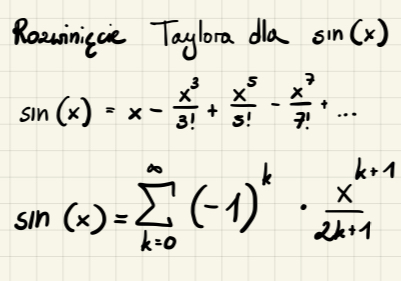 Rozwinięcie Taylora dla sin(x)
sin(x) = x - x³/3! + x⁵/5! - x⁷/7! + ...
sin(x) = ∑_{k=0}^{∞} (-1)^k · x^{k+1}/2k+1